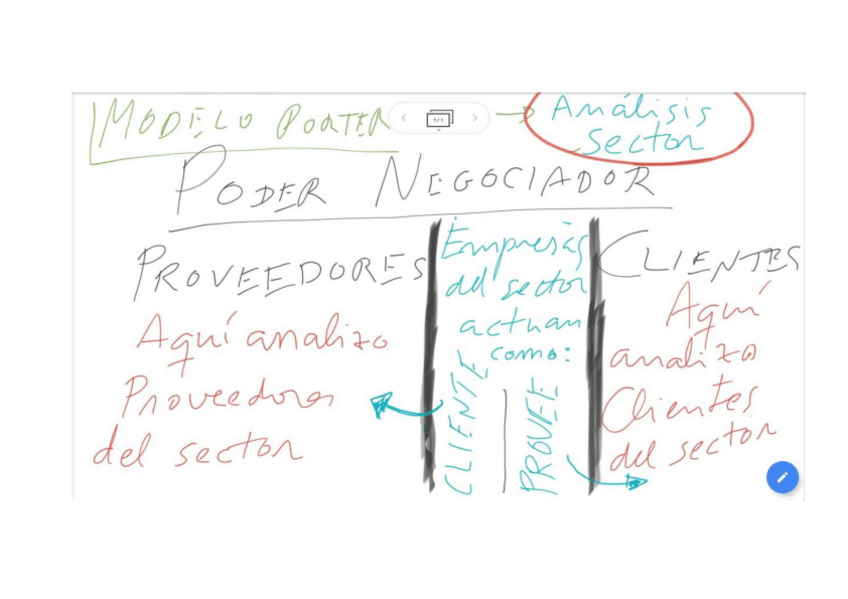 MODELO PORTER
1/1
Análisis
sector
PODER NEGOCIADOR
PROVEEDORES
Aquí analizo
Proveedores
del sector
Empresas
del sector
actuan
como:
CLIENTE
PROVEE
CLIENTES
Aquí
analizo
Clientes
del sector